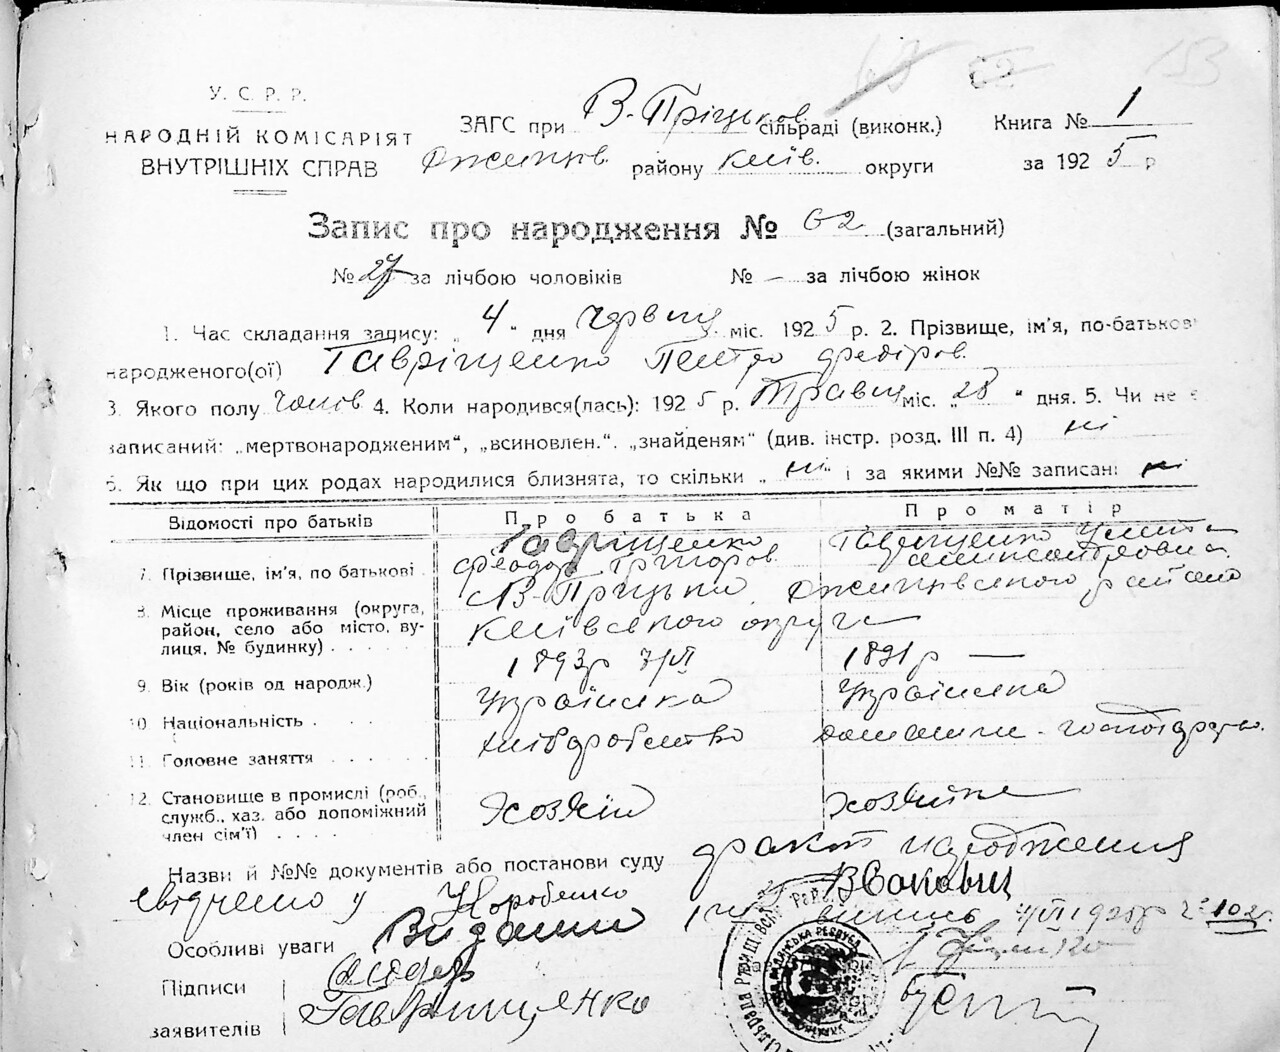 153
У. С. Р. Р.
НАРОДНІЙ КОМІСАРІЯТ
ВНУТРІШНІХ СПРАВ
ЗАГС при В-Пріцьков сільраді (виконк.) Книга № 1
району Київ. округи за 1925 р
Запис про народження № 62 (загальний)
№ 27 за лічбою чоловіків № — за лічбою жінок
1. Час складання запису: „ 4 “ дня Червня міс. 1925 р. 2. Прізвище, ім'я, по-батькові
народженого(ої) Гавріщенко Петро Федіров.
3. Якого полу чолов 4. Коли народився(лась): 1925 р. Травня міс. „ 28 “ дня. 5. Чи не є
записаний: „мертвонародженим“, „всиновлен.“. „знайденям“ (див. інстр. розд. III п. 4) ні
6. Як що при цих родах народилися близнята, то скільки „ ні “ і за якими №№ записані ні
Відомості про батьків Про батька Про матір
7. Прізвище, ім'я, по батькові Гаврищенко Феодор Григоров. Гаврищенко
8. Місце проживання (округа, район, село або місто, вулиця, № будинку) В-Пріцьки району
Київського округи
9. Вік (років од народж.) 1893р 1891р —
10. Національність Українська Українка
11. Головне заняття хліборобство домашнє господарство.
12. Становище в промислі (роб., служб., хаз. або допоміжний член сім'ї) Хозяїн Хозяйка
Назви й №№ документів або постанови суду факт народження
свідчено у Коробенко
Особливі уваги Видани
Підписи
заявителів Гаврищенко